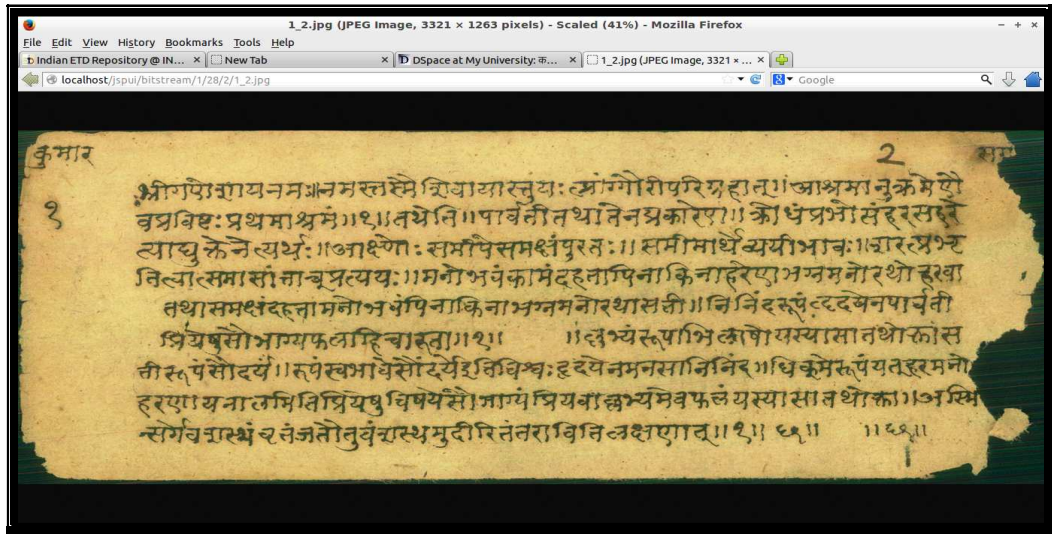 1_2.jpg (JPEG Image, 3321 × 1263 pixels) - Scaled (41%) - Mozilla Firefox
File Edit View History Bookmarks Tools Help
Indian ETD Repository @ IN... New Tab DSpace at My University: क... 1_2.jpg (JPEG Image, 3321 × ...
localhost/jspui/bitstream/1/28/2/1_2.jpg Google
कुमार 2 सर्ग
१
श्रीगणेशायनमः॥नमस्तस्मैशिवायास्तुयः गौरीपरिग्रहात्॥आश्रमानुक्रमेणै
वप्रविष्टःप्रथमाश्रमं॥१॥तथेति॥पार्वतीतथातेनप्रकारेण॥क्रोधंप्रभोसंहरसंहरे
त्याद्युक्तेनेत्यर्थः॥आक्ष्णोः समीपेसमक्षंपुरतः॥समीमार्थेव्ययीभावः॥शरत्प्रभृ
तित्वात्समासांताच्प्रत्ययः॥मनोभवंकामंदहतापिनाकिनाहरेणभग्नमनोरथो
तथासमक्षंदहतामनोभवंपिनाकिनाभग्नमनोरथासती॥निनिंदरूपंहृदयेनपार्वती
प्रियेषुसौभाग्यफलाहिचारुता॥१॥ रूपाभिलाषोयस्यासातथोक्तास
तीरूपंसौंदर्यं॥रूपंस्वभावेसौंदर्येइतिविश्वःहृदयेनमनसानिनिंद॥धिक्मेरूपंयतहरमनो
हरणायनालमितिप्रियेषुविषयेसौभाग्यंप्रियवाल्लभ्यमेवफलंयस्यासातथोक्ता॥अस्मि
न्सर्गेवंशस्थं जतौतुवंशस्थमुदीरितंजरावितिलक्षणात्॥१॥